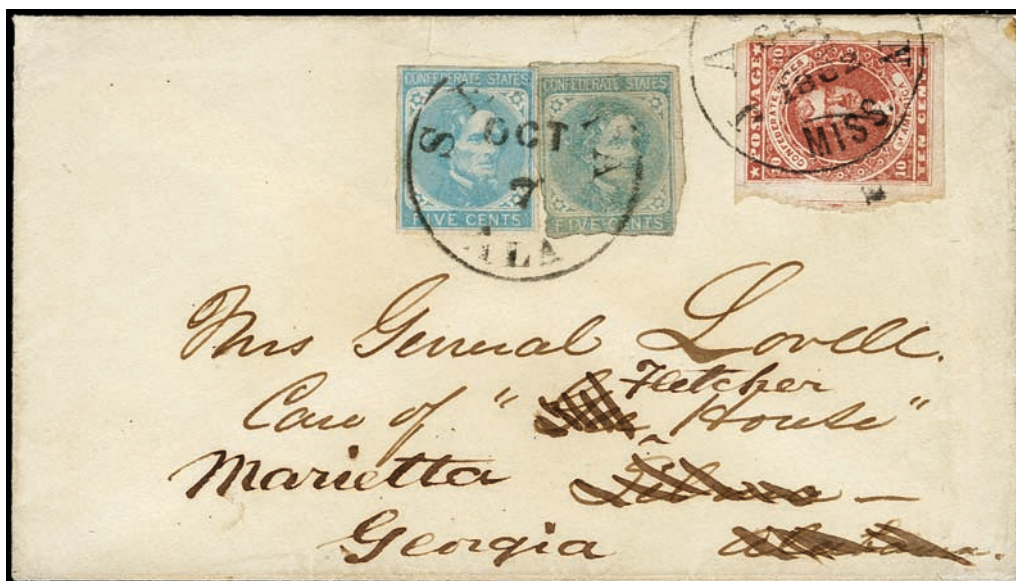 CONFEDERATE STATES
FIVE CENTS
CONFEDERATE STATES
FIVE CENTS
OCT
7
ALA
1862
MISS.
POSTAGE
CONFEDERATE STATES
10
TEN CENTS
Mrs General Lovell.
Care of " Fletcher House"
Marietta
Georgia